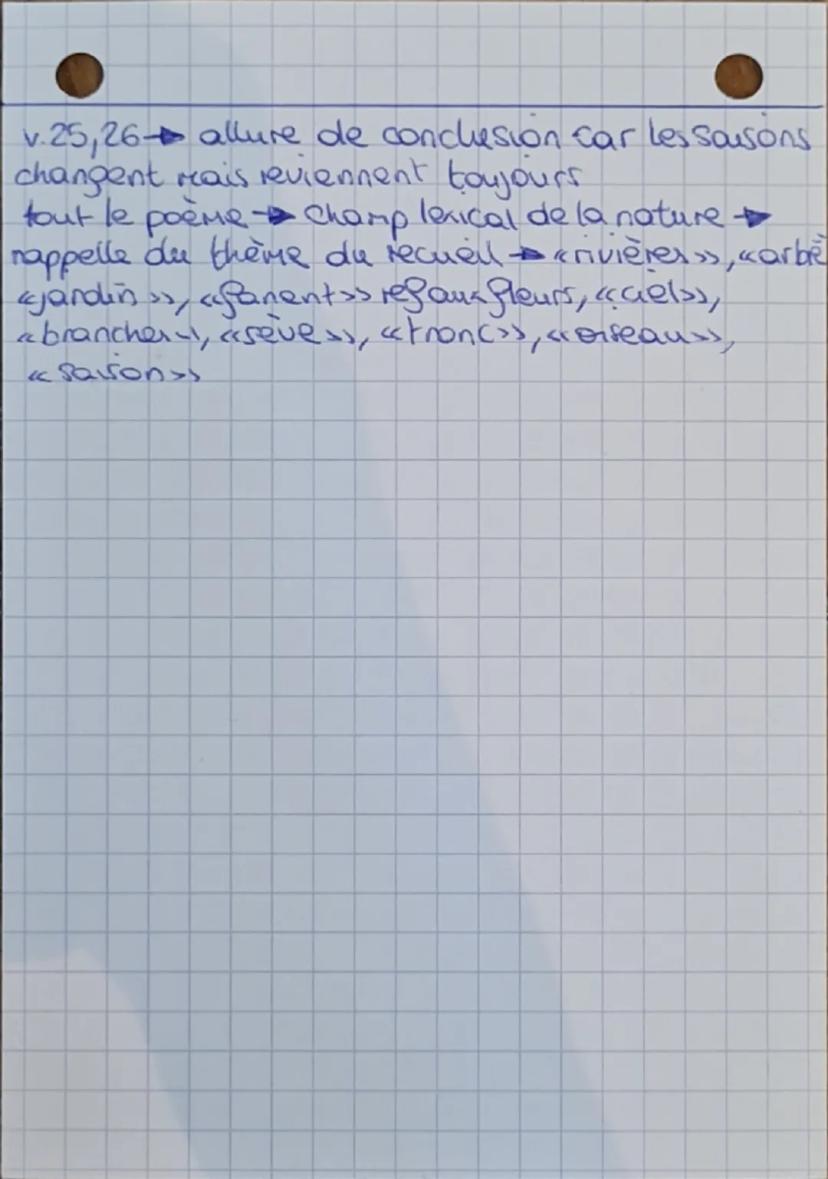 v.25,26 → allure de conclusion car les saisons
changent mais reviennent toujours
tout le poème → champ lexical de la nature →
rappelle du thème du recueil → «rivières», «arbre
«jardin», «fanent» ref aux fleurs, «ciel»,
«branches», «sève», «tronc», «oiseau»,
«saison»